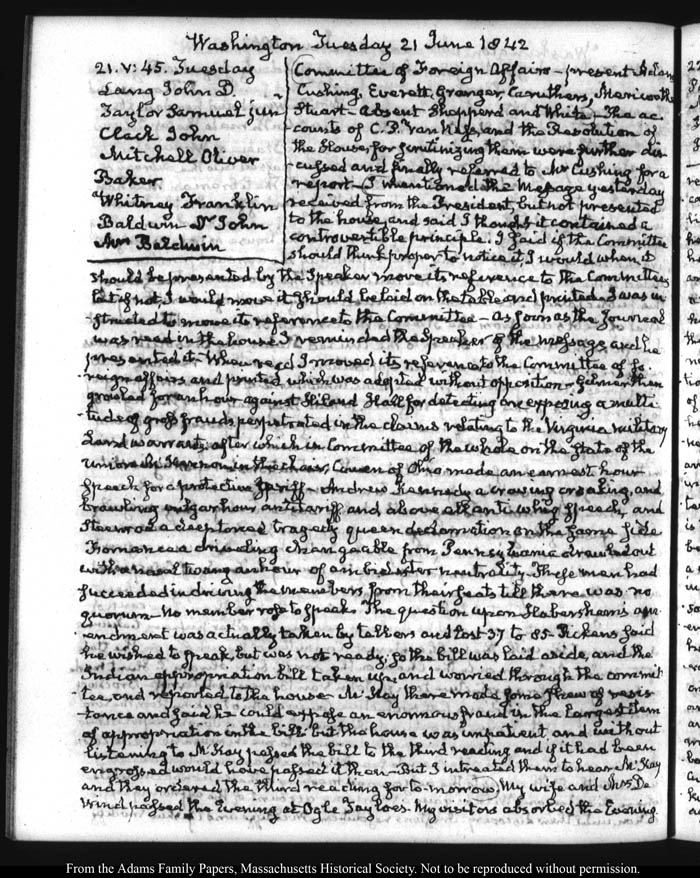 Washington Tuesday 21 June 1842
21. V: 45. Tuesday
Laing John D.
Taylor Samuel jun
Clack John
Mitchell Oliver
Baker
Whitney Franklin
Baldwin Dr John
Mrs Baldwin
Committee of Foreign Affairs – present Adams
Cushing, Everett, Granger, Caruthers, Meriwether
Stuart – absent Shepperd and White – The ac-
counts of C. P. Van Ness, and the Resolution of
the House, for scrutinizing them were further dis-
cussed and finally referred to Mr Cushing for a
report – I mentioned the Message yesterday
received from the President, but not presented
to the house, and said I thought it contained a
controvertible principle. I said if the Committee
should think proper to notice it I would when it
should be presented by the Speaker move its reference to the Committee
but if not, I would move it should be laid on the table and printed. I was in-
structed to move its reference to the Committee – as soon as the Journal
was read in the house I reminded the Speaker of the message and he
presented it – When read I moved its reference to the Committee of fo-
reign affairs and printed which was adopted without opposition – Gilmer then
growled for an hour against Hiland Hall for detecting and exposing a multi-
tude of gross frauds perpetrated in the claims relating to the Virginia military
Land warrants; after which in Committee of the whole on the State of the
union in the chair, Cowen of Ohio made an earnest hour
speech for a protective tariff – Andrew Kennedy a crowing croaking, and
brawling vulgar hour antitariff and above all antiwhig speech, and
Steenrod a deep toned tragedy queen declamation on the same side
Fornance a driveling changeable from Pennsylvania drawled out
with a nasal twang an hour of ambidexter neutrality. These men had
succeeded in driving the members from their seats till there was no
quorum – No member rose to speak. The question upon Habersham's am-
endment was actually taken by tellers and lost 37 to 85. Pickens said
he wished to speak, but was not ready; so the bill was laid aside, and the
Indian appropriation bill taken up, and worried through the commit-
tee, and reported to the house – McKay there made some shew of resis-
tance and said he could expose an enormous fraud in the largest item
of appropriation in the bill; but the house was impatient and without
listening to McKay passed the bill to the third reading and if it had been
engrossed would have passed it then – But I intreated them to hear McKay
and they ordered the third reading for to-morrow. My wife and Mrs De
Wind passed the Evening at Ogle Tayloe's. My visitors absorbed the Evening.
From the Adams Family Papers, Massachusetts Historical Society. Not to be reproduced without permission.